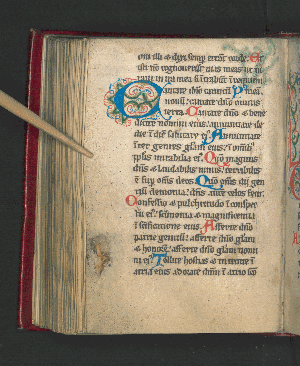 oni illi & dixi semp errant corde. Et
isti nō cognouerūt uias meas ut iu
raui in ira mea si ītrabūt ī requiem
Cantate dno canticū meā
nouū: cantate dno omnis
terra. Cantate dno & bene
dicite nomini eius: annuntiate de
die ī diē salutare ei. Annuntiate
inter gentes gliam eius: ī omnib;
pplis mirabilia ei. Qm magnus
dns & laudabilis nimis: terribilis
ē sup omīs deos. Qm omīs dii gen
tiū demonia: dns autē celos fecit.
Confessio & pulchritudo ī conspec
tu ei: scimonia & magnificentia
ī scificatione eius. Afferte dno
patrie gentiū: afferte dno gliam
& honorē: afferte dno gliam nomi
ni ei. Tollite hostias & introite ī
atria eius adorate dnm ī atrio sco